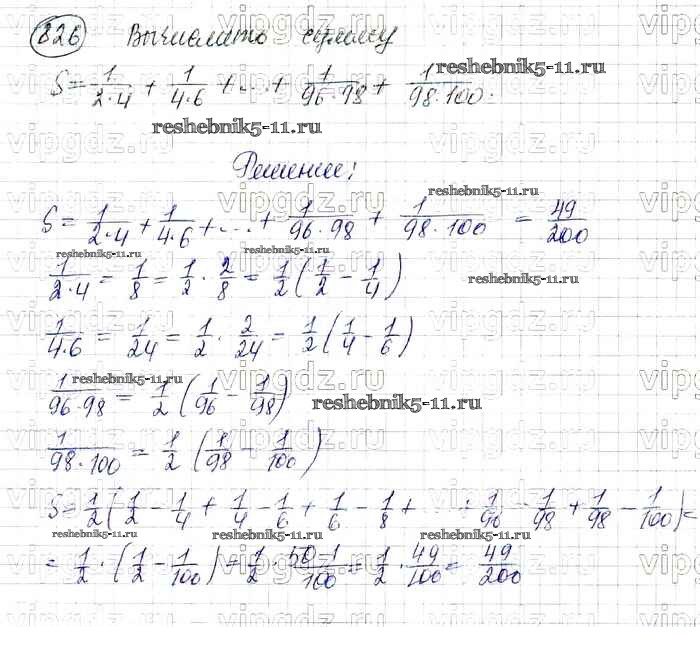 826 Вычислить сумму
S = 1/(2·4) + 1/(4·6) + ... + 1/(96·98) + 1/(98·100).
reshebnik5-11.ru
reshebnik5-11.ru
Решение:
reshebnik5-11.ru
S = 1/(2·4) + 1/(4·6) + ... + 1/(96·98) + 1/(98·100) = 49/200
reshebnik5-11.ru
1/(2·4) = 1/8 = 1/2 · 2/8 = 1/2 (1/2 - 1/4)
reshebnik5-11.ru
1/(4·6) = 1/24 = 1/2 · 2/24 = 1/2 (1/4 - 1/6)
reshebnik5-11.ru
1/(96·98) = 1/2 (1/96 - 1/98)
reshebnik5-11.ru
1/(98·100) = 1/2 (1/98 - 1/100)
S = 1/2 (1/2 - 1/4 + 1/4 - 1/6 + 1/6 - 1/8 + ... + 1/96 - 1/98 + 1/98 - 1/100) =
reshebnik5-11.ru
reshebnik5-11.ru
= 1/2 · (1/2 - 1/100) = 1/2 · (50-1)/100 = 1/2 · 49/100 = 49/200
vipgdz.ru